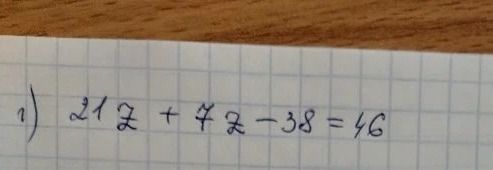 г) 21z + 7z - 38 = 46